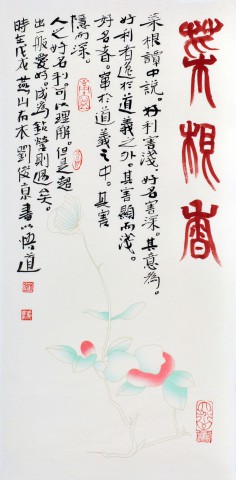 菜根香
菜根谭中说。好利害浅。好名害深。其意为。
好利者逸於道义之外。其害显而浅。
好名者。窜於道义之中。其害
隐而深。
人之好名利。可以理解。但是超
出一般爱好成为
时在戊戌燕山布衣刘俊京书以悟道